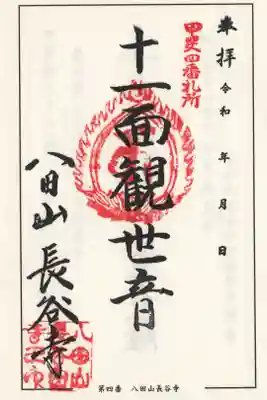 奉拝 令和 年 月 日
甲斐四番札所
十一面観世音
八田山 長谷寺
第四番 八田山長谷寺